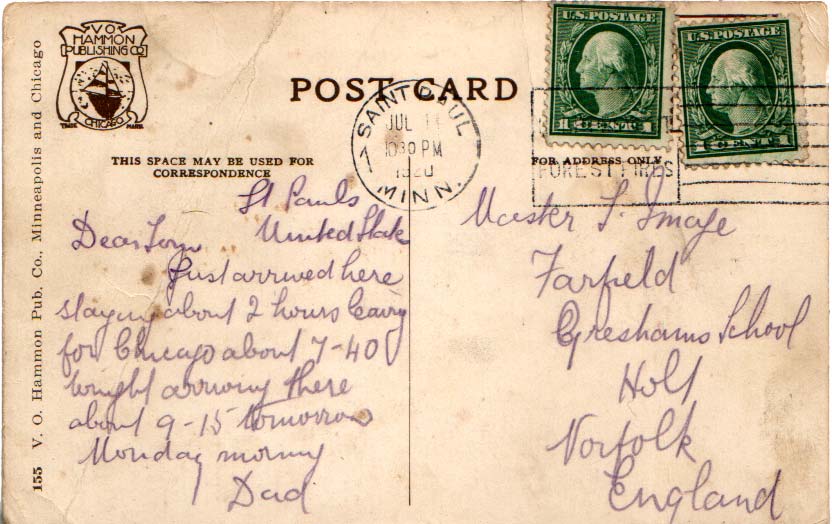 V.O.
HAMMON
PUBLISHING CO
CHICAGO
TRADE MARK
POST CARD
U.S. POSTAGE
1 CENTS 1
U.S. POSTAGE
1 CENTS 1
SAINT PAUL
JUL 11
10 30 PM
1920
MINN.
FOREST FIRES
THIS SPACE MAY BE USED FOR
CORRESPONDENCE
FOR ADDRESS ONLY
155 V. O. Hammon Pub. Co., Minneapolis and Chicago
St Pauls
United State
Dear Tom
Just arrived here
staying about 2 hours leaving
for Chicago about 7-40
tonight arriving there
about 9-15 tomorrow
Monday morning
Dad
Master T. Image
Farfield
Greshams School
Holt
Norfolk
England